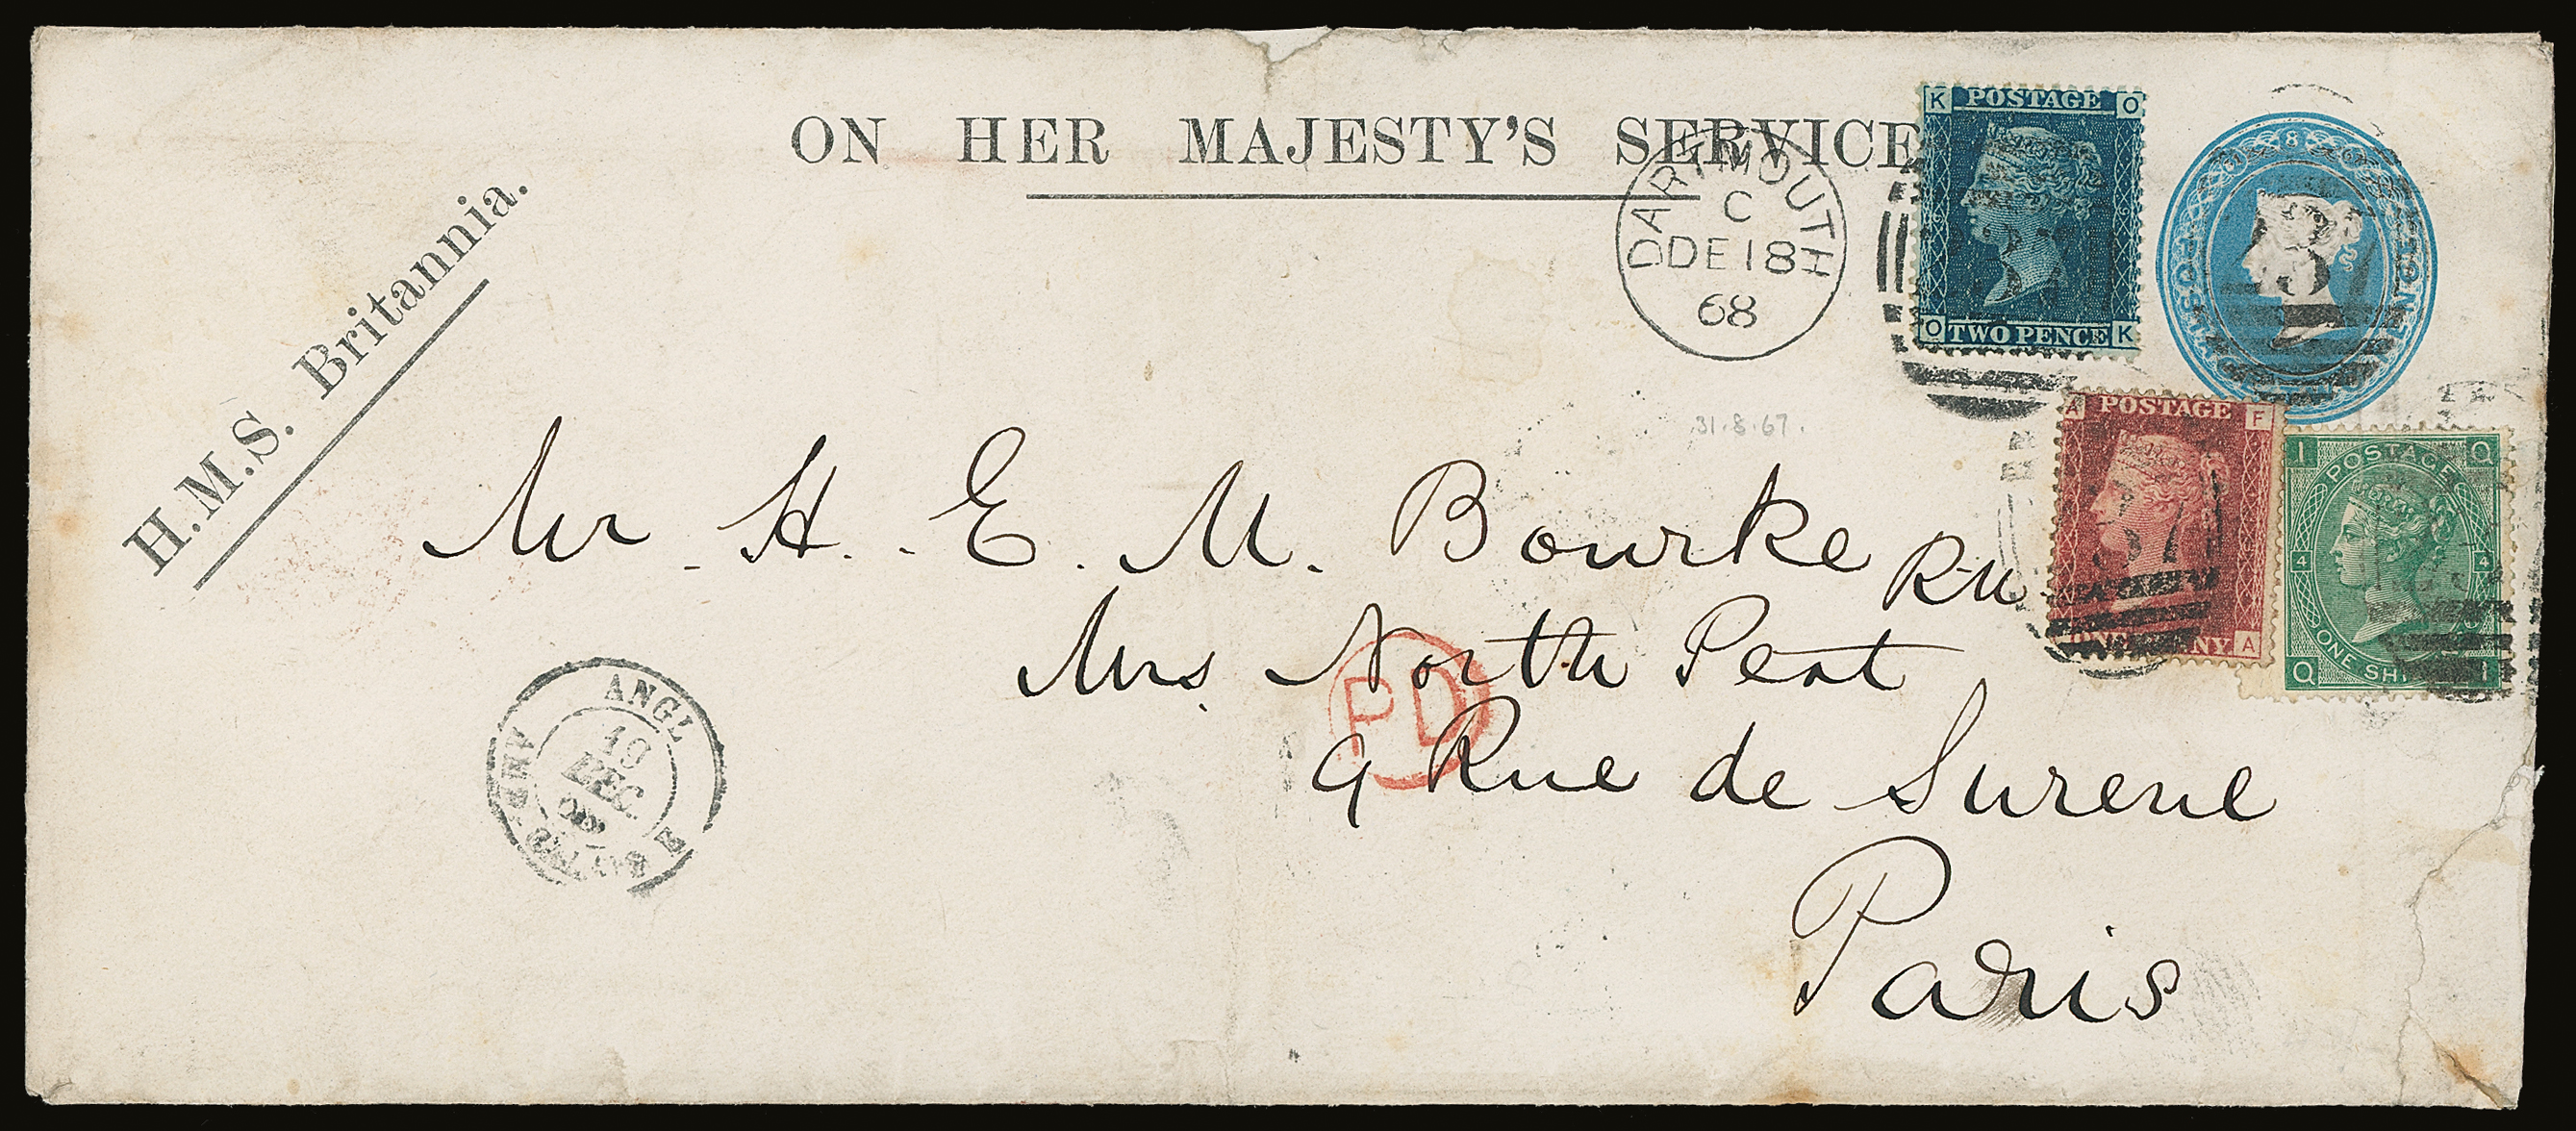 ON HER MAJESTY'S SERVICE
H.M.S. Britannia.
DARTMOUTH
C
DE 18
68
K POSTAGE O
O TWO PENCE K
31.8.67.
A POSTAGE F
ONE PENNY A
I POSTAGE Q
4 4
Q ONE SHI I
37
Mr. H. E. M. Bourke RN
Mrs. North Peat
9 Rue de Surene
Paris
PD
ANGL
19
DEC
68